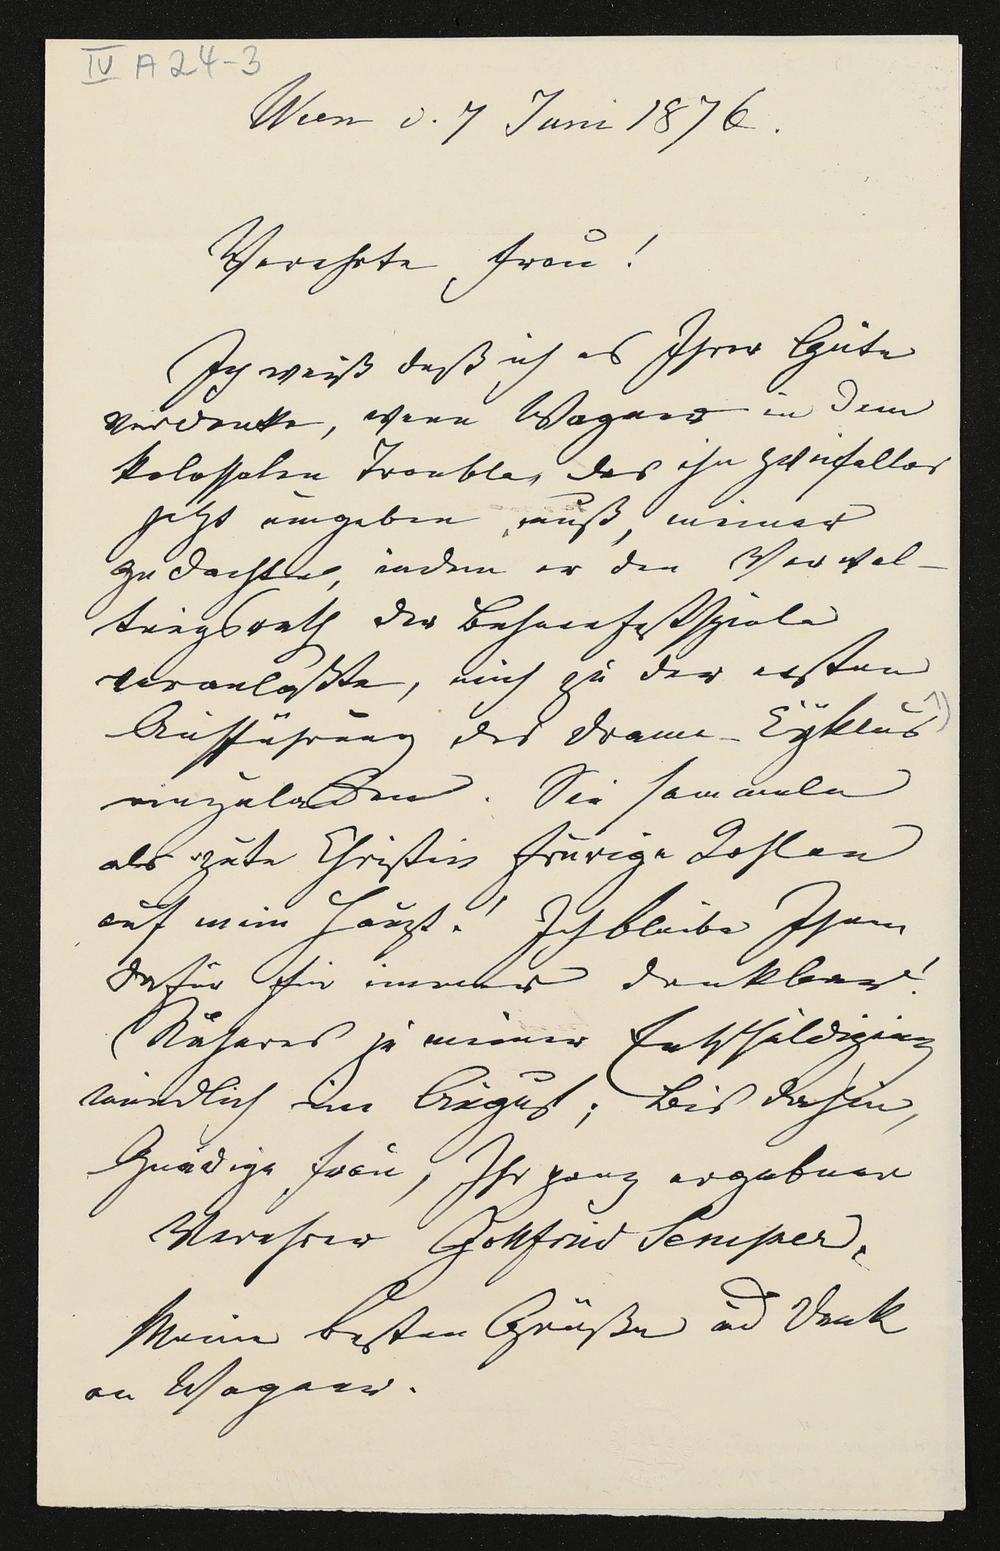 IV A 24-3
Wien d. 7 Juni 1876.
Verehrte Frau!
Ich weiß daß ich es Ihrer Güte
verdanke, wenn Wagner in dem
kolossalen Trouble, das ihn zweifellos
jetzt umgeben muß, meiner
gedachte, indem er den Verwal-
tungsrath der Bühnenfestspiele
veranlaßte, mich zu der ersten
Aufführung des Drama-Cyklus 1)
einzuladen. Sie sammeln
als gute Christin feurige Kohlen
auf mein Haupt! Ich bleibe Ihnen
dafür für immer dankbar!
Näheres zu meiner Entschuldigung
mündlich im August; bis dahin,
Gnädige Frau, Ihr ganz ergebener
Verehrer Gottfried Semper.
Meine besten Grüße und Dank
an Wagner.